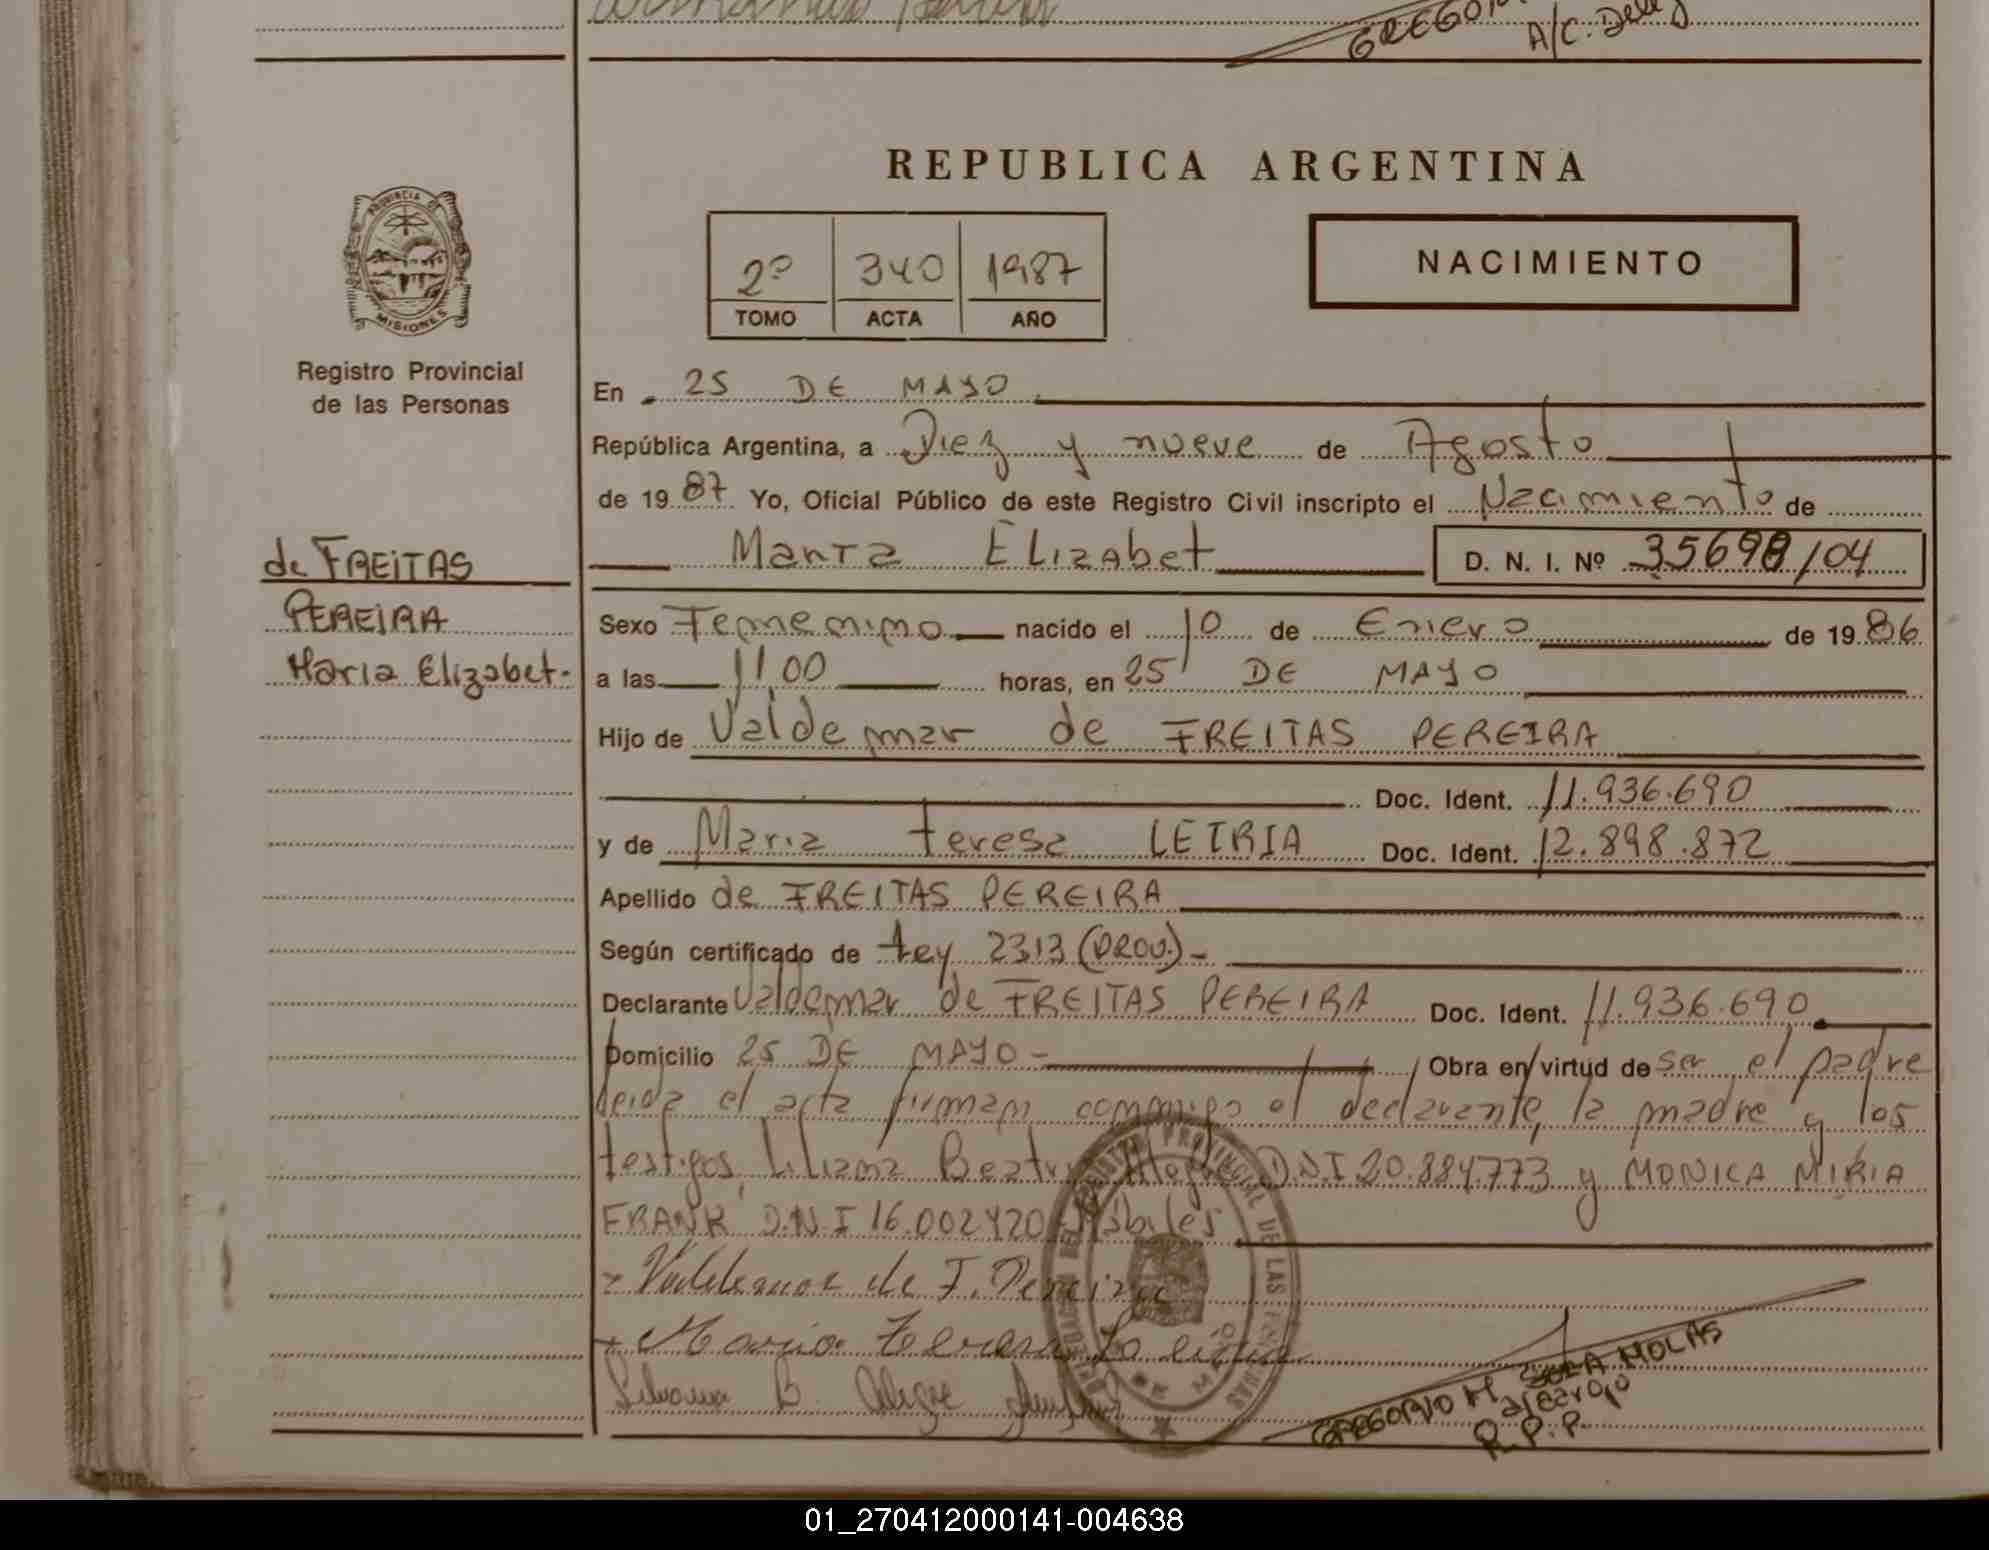 GREGORI
A/C. Deleg
REPUBLICA ARGENTINA
PROVINCIA DE
MISIONES
2º 340 1987
TOMO ACTA AÑO
NACIMIENTO
Registro Provincial
de las Personas
En 25 DE MAYO
República Argentina, a Diez y nueve de Agosto
de 1987 Yo, Oficial Público de este Registro Civil inscripto el Nacimiento de
Elizabet D. N. I. Nº /04
de FREITAS
PEREIRA
María Elizabet.-
Sexo Femenino nacido el 10 de Enero de 1986
a las 11 00 horas, en 25 DE MAYO
Hijo de Valdemar de FREITAS PEREIRA
Doc. Ident. 11.936.690
y de Maria teresa LEIRIA Doc. Ident. 12.898.872
Apellido de FREITAS PEREIRA
Según certificado de Ley 2313 (PROV.)-
Declarante Valdemar de FREITAS PEREIRA Doc. Ident. 11.936.690
Domicilio 25 DE MAYO- Obra en virtud de ser el padre
leida el acta firman conmigo el declarante, la madre y los
testigos, Liliana Beatriz D.N.I 20.884.773 y MONICA MIRIA
FRANK D.N.I 16.002420 Hábiles
Valdemar de F. Pereira
Maria Teresa
B. Alegre
GREGORIO H. SOSA MOLAS
a/cargo
R.P.P.
REGISTRO PROVINCIAL DE LAS PERSONAS
DE MAYO
01_270412000141-004638